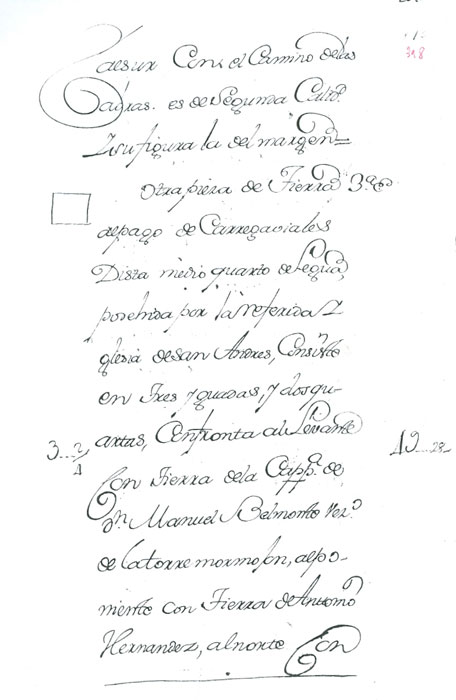 al sur Con el Camino de las
Cabras. es de Segunda Calid.
Y su figura la del margen
Otra pieza de Tierra 3.ª
al pago de Carregaviales
Dista medio quarto de Legua,
posehida por la referida Y
glesia de San Andres, Consiste
en tres Yguadas, y dos qu-
artas, Confronta al Levante
3...2
4
19...28
Con tierra de la Capp.ª de
Dn. Manuel Belmonte Vez.º
de la torre mormojon, al po-
niente con tierra de Antonio
Hernandez, al norte Con